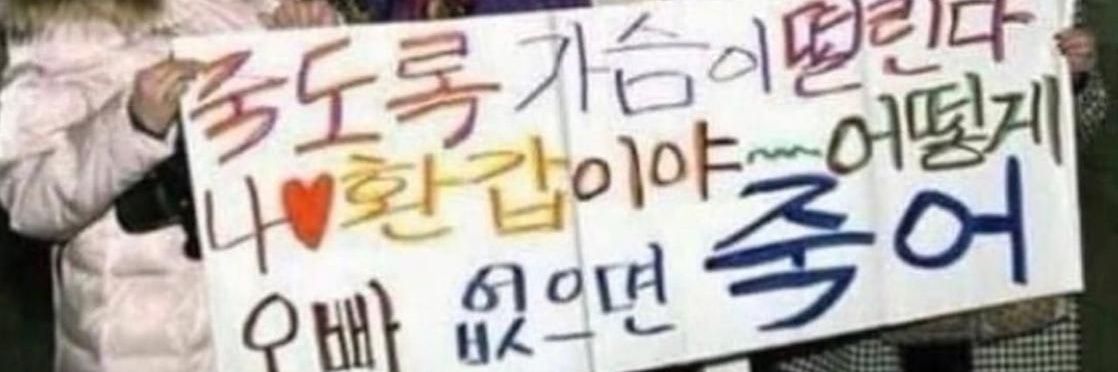 죽도록 가슴이 떨린다
나♥환갑이야~ 어떻게
오빠 없으면 죽어